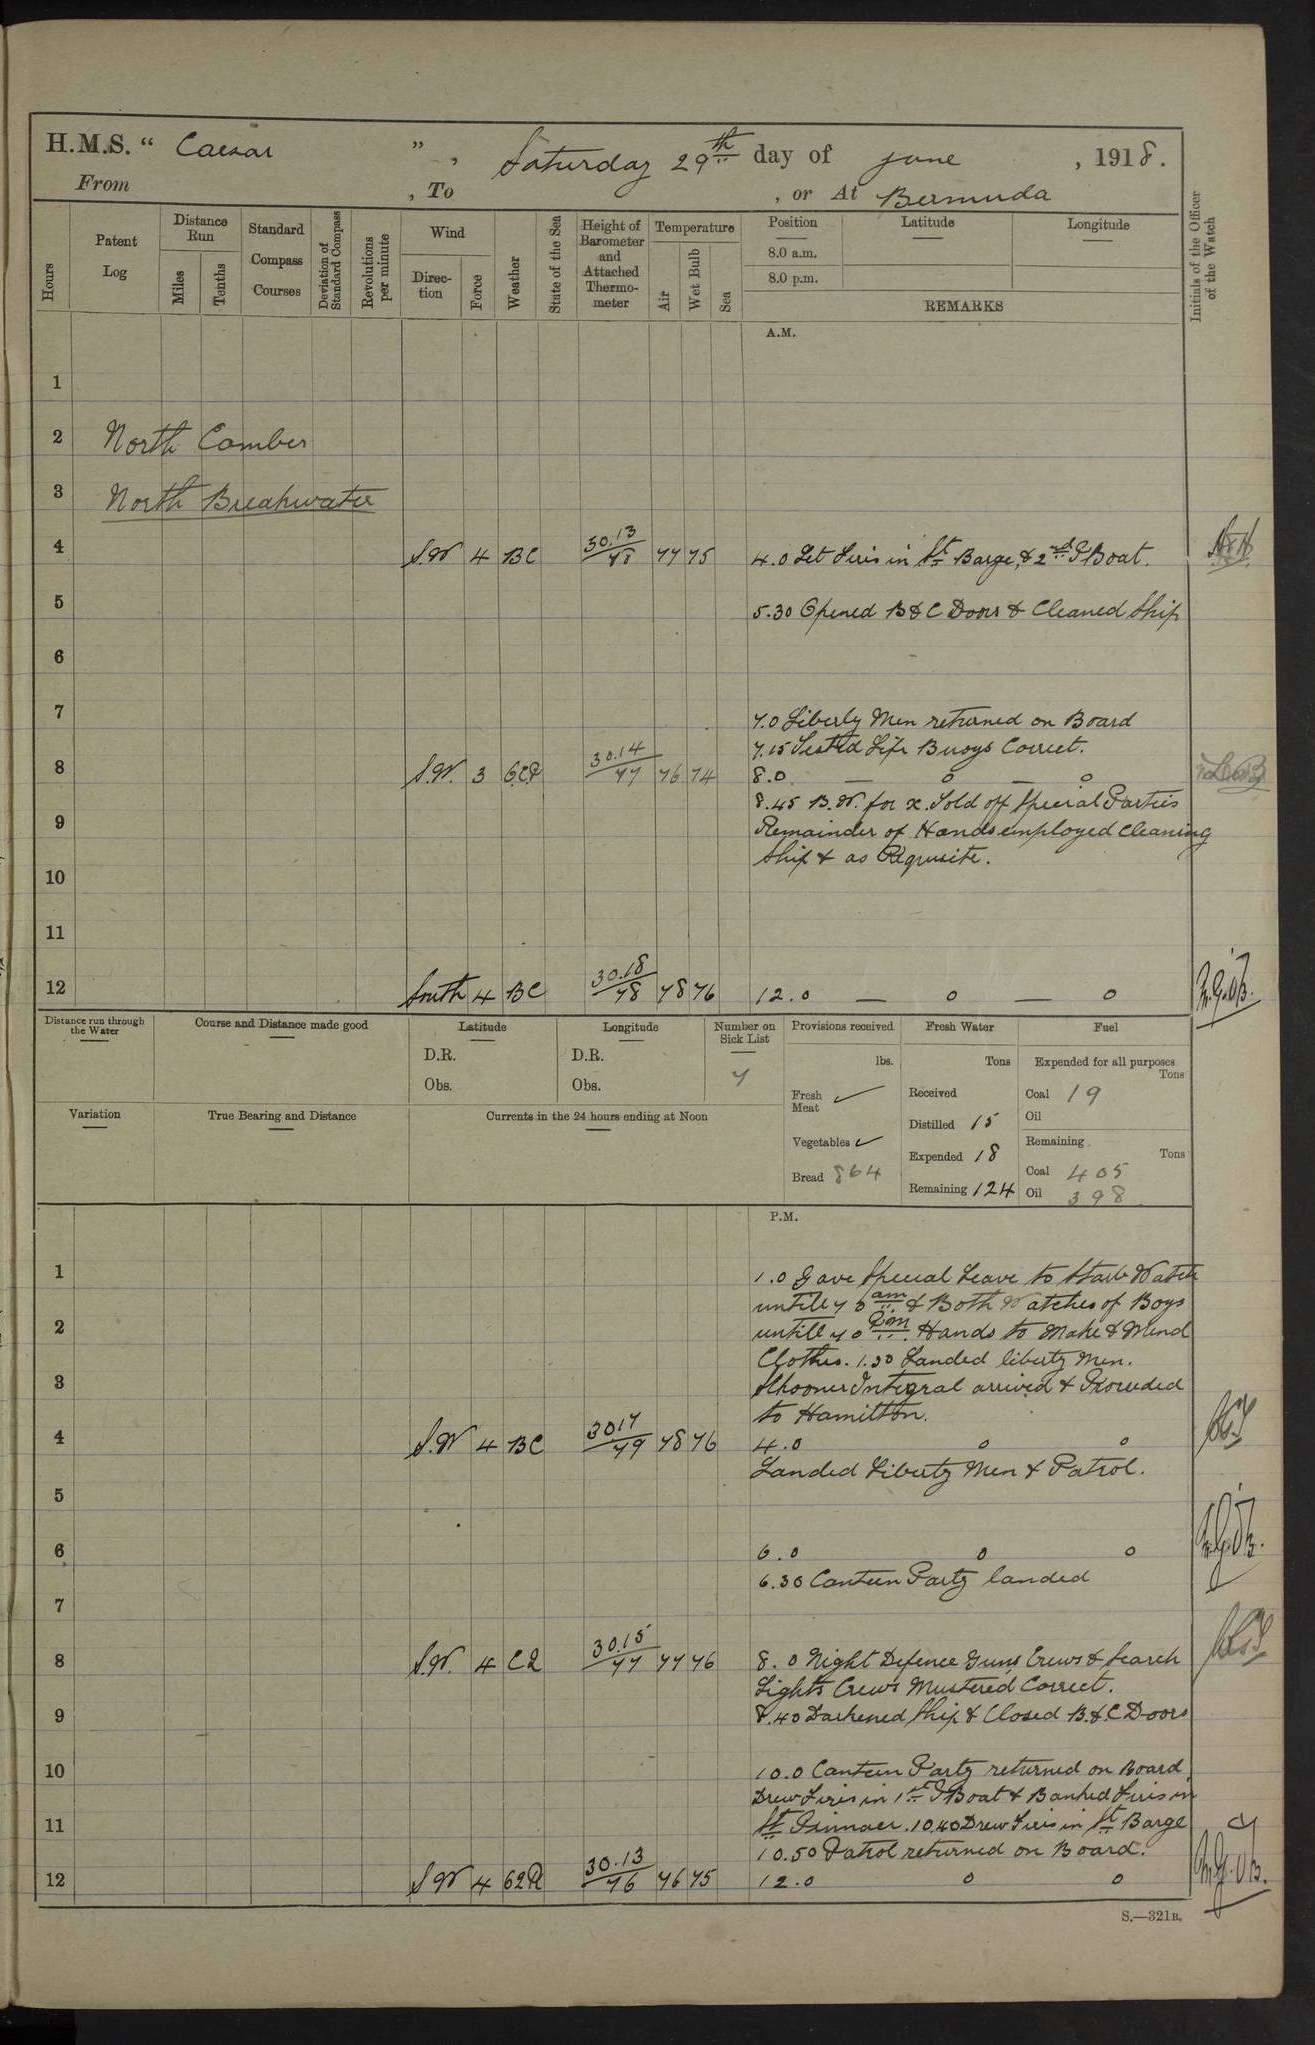 H.M.S. " Caesar ", Saturday 29th day of June, 1918.
From , To , or At Bermuda
Hours
Patent Log
Distance Run
Miles
Tenths
Standard Compass Courses
Deviation of Standard Compass
Revolutions per minute
Wind
Direction
Force
Weather
State of the Sea
Height of Barometer and Attached Thermometer
Temperature
Air
Wet Bulb
Sea
Position
Latitude
Longitude
8.0 a.m.
8.0 p.m.
REMARKS
Initials of the Officer of the Watch
A.M.
1
2 North Camber
3 North Breakwater
4 S.W 4 BC 30.13/78 77 75 4.0 Let Firis in St Barge, & 2nd P Boat.
5 5.30 Opened B & C Doors & Cleaned Ship
6
7 7.0 Liberty Men returned on Board
7.15 Tested Life Buoys Correct.
8 S.W. 3 30.14/77 76 74 8.0 — o — o
8.45 B.W. for x. Told off Special Parties
9 Remainder of Hands employed Cleaning
Ship & as Requisite.
10
11
12 South 4 BC 30.18/78 78 76 12.0 — o — o
Distance run through the Water
Course and Distance made good
Latitude
D.R.
Obs.
Longitude
D.R.
Obs.
Number on Sick List
7
Provisions received
lbs.
Fresh Meat ✓
Vegetables ✓
Bread 864
Fresh Water
Tons
Received
Distilled 15
Expended 18
Remaining 124
Fuel
Expended for all purposes
Tons
Coal 19
Oil
Remaining
Tons
Coal 405
Oil 398
Variation
True Bearing and Distance
Currents in the 24 hours ending at Noon
P.M.
1 1.0 Gave Special Leave to Starb Watch
untill 7 0 am & Both Watches of Boys
2 untill 7 0 Pm. Hands to Make & Mend
Clothes. 1.30 Landed liberty Men.
3 Schooner Integral arrived & Proceeded
to Hamilton.
4 S.W 4 BC 30.17/79 78 76 4.0 o o
Landed Liberty Men & Patrol.
5
6 6.0 o o
6.30 Canteen Party landed
7
8 S.W. 4 30.15/77 77 76 8.0 Night Defence Guns Crews & Search
Lights Crews Mustered Correct.
9 8.40 Darkened Ship & Closed B.&.C Doors
10 10.0 Canteen Party returned on Board
Drew Firis in 1st P Boat & Banked Firis in
11 St Pinnace. 10.40 Drew Firis in St Barge
10.50 Patrol returned on Board.
12 S.W 4 30.13/76 76 75 12.0 o o
S.—321B.